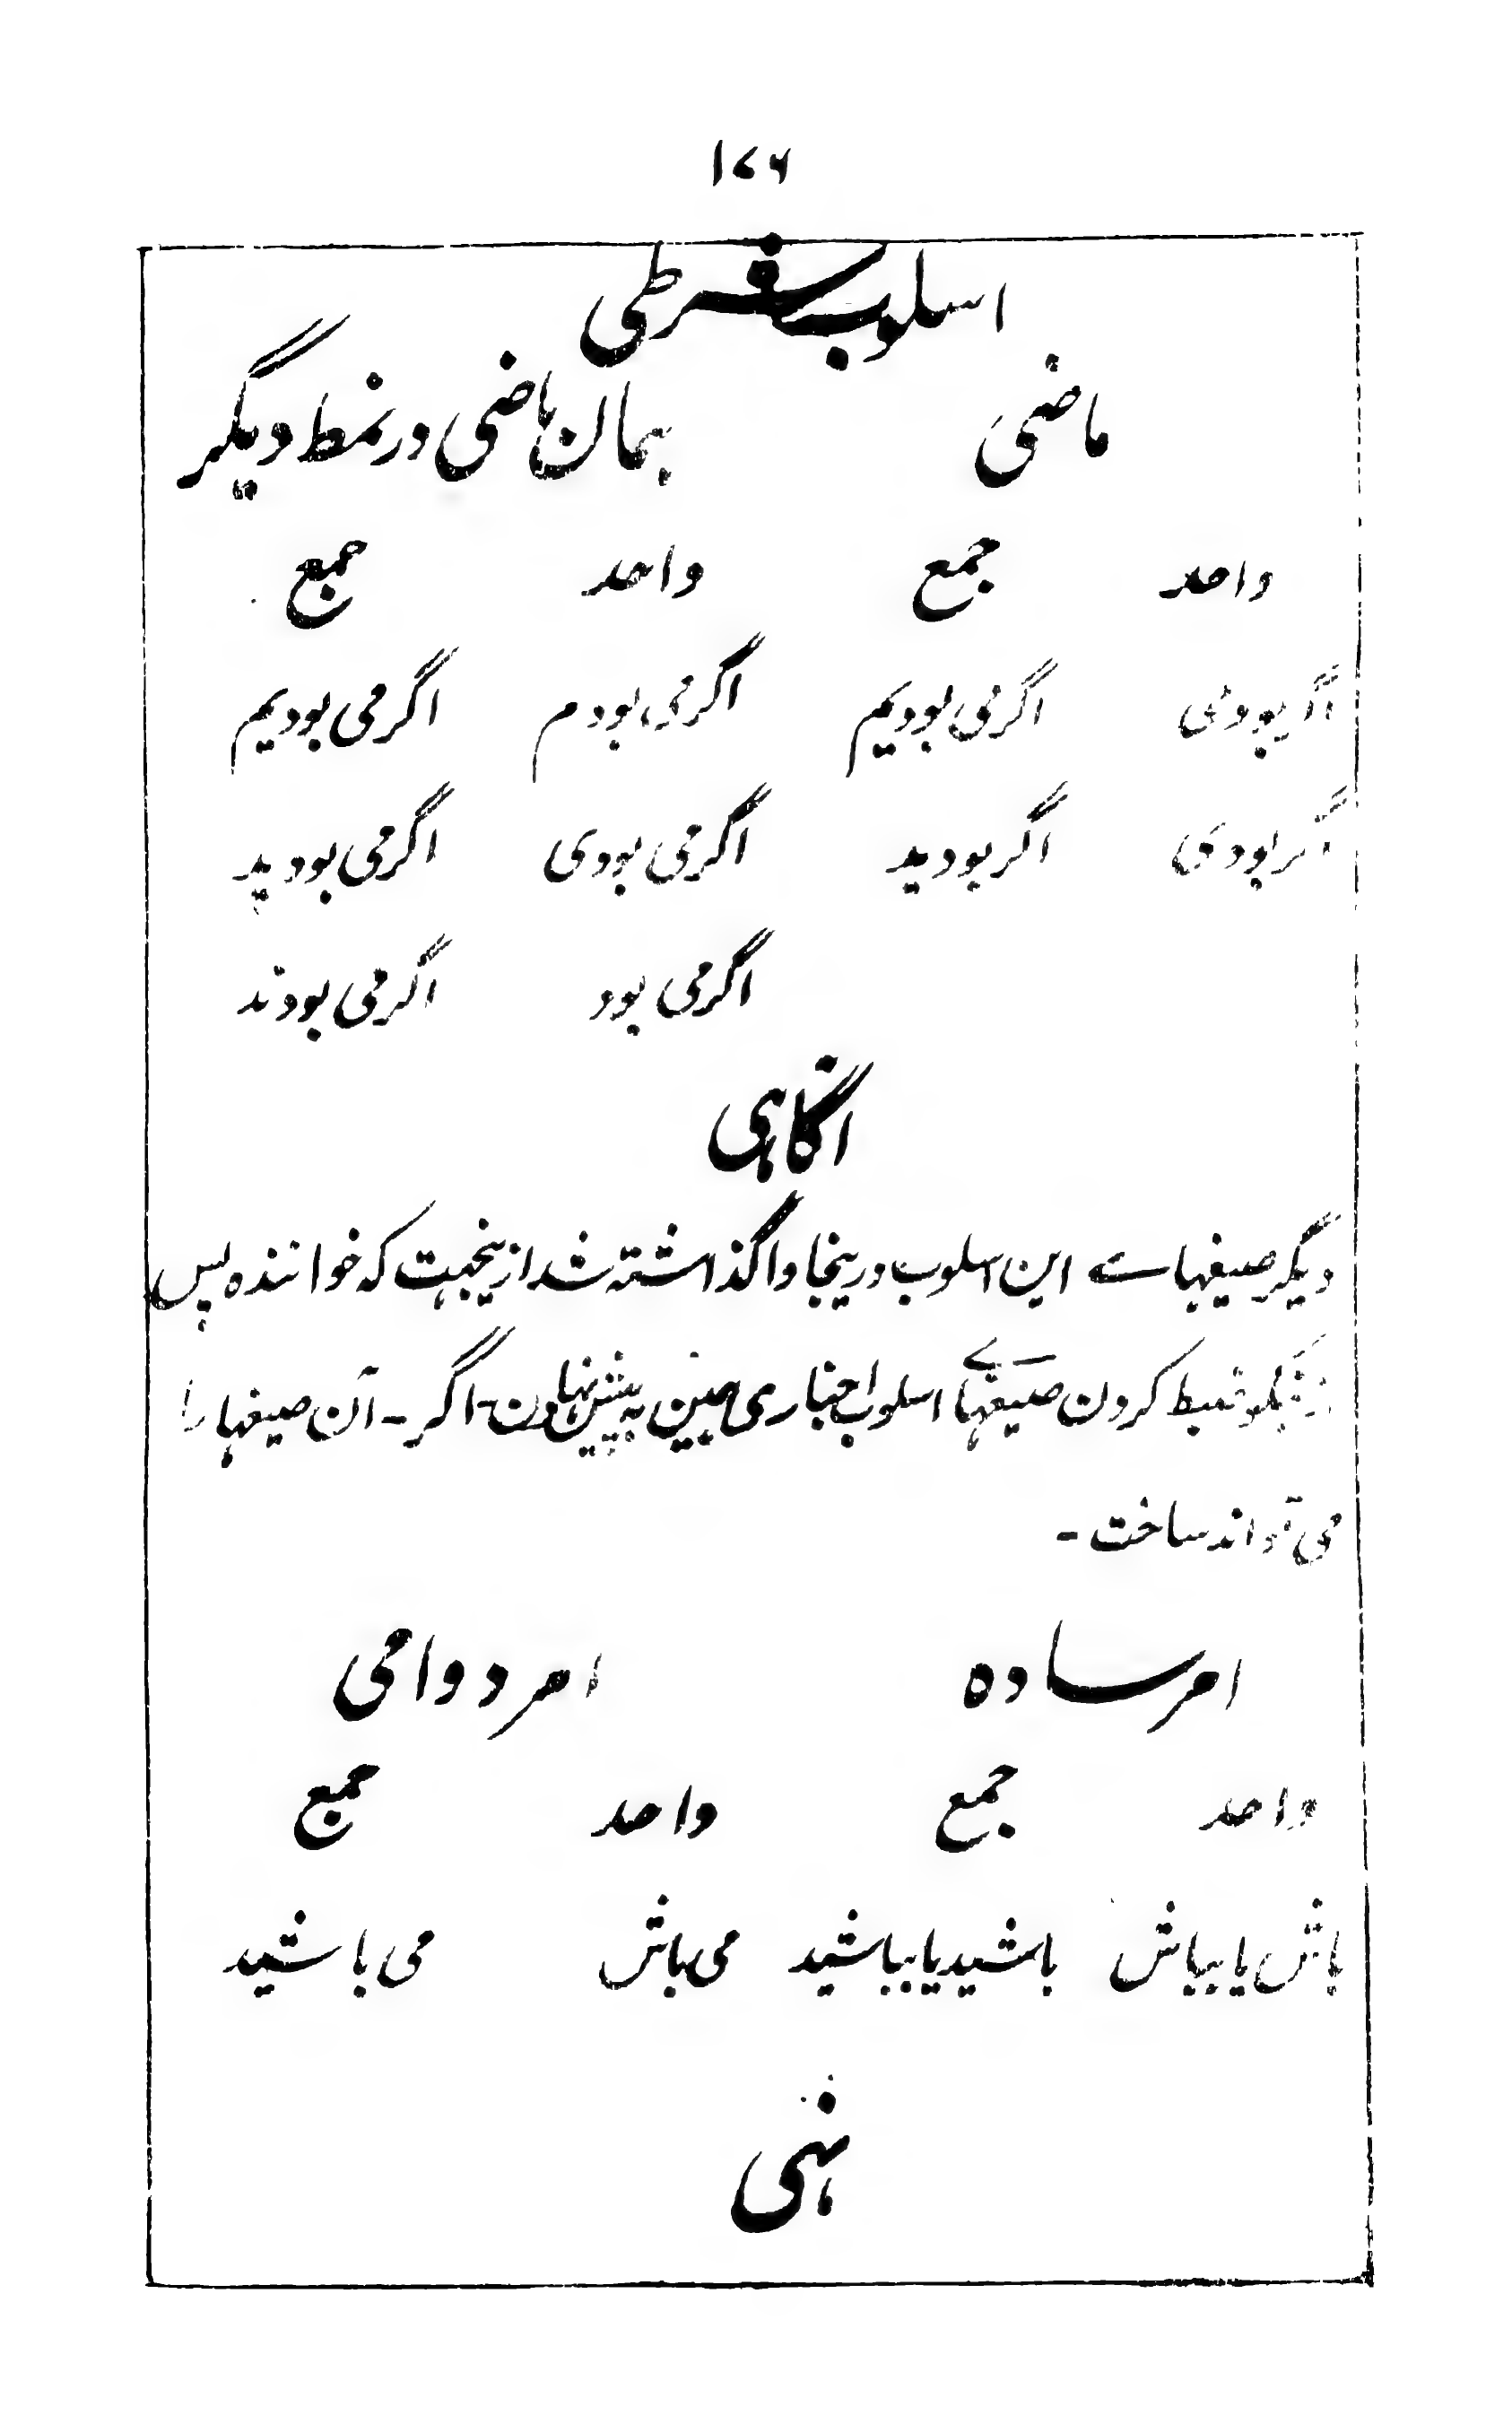 ۱۷۶
اسلوب شرطی
ماضی همان ماضی در نمط دیگر
واحد جمع واحد جمع
اگر بودمی اگر می بودیم اگر می بودم اگر می بودیم
اگر بودی اگر بودید اگر می بودی اگر می بودید
اگر می بود اگر می بودند
آگاهی
دیگر صیغہاے این اسلوب درینجا واگذاشتہ شد ازینجہت کہ خوانندہ پس
ضبط کردن صیغہاے اسلوب اخباری ہمین بہ پیش نہادن - اگر - آن صیغہا را
می تواند ساخت -
امر سادہ امر دوامی
واحد جمع واحد جمع
باش یا بباش باشید یا بباشید می باش می باشید
نہی